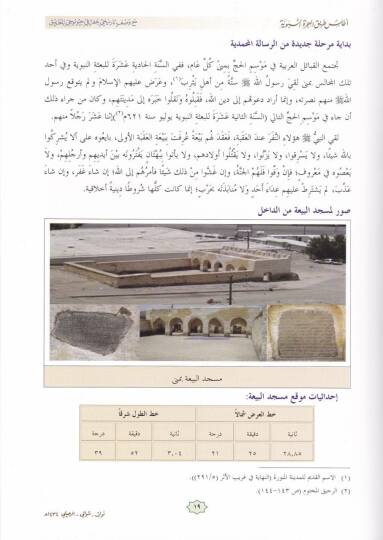 أطلس طريق الهجرة النبوية
بداية مرحلة جديدة من الرسالة المحمدية
تجتمع القبائل العربية في مَوْسِمِ الحجِّ بِمِنىً كُلَّ عَامٍ، ففي السَّنَةِ الحَادِيَةَ عَشْرَةَ للبعثةِ النبوية وفي أحد
تلك المَجالس بمنى لقِيَ رسولُ الله ﷺ ستَّةٌ مِن أهلِ يَثْرِبَ(١)، وعَرَضَ عليهم الإسلامَ ولم يتوقع رسول
الله ﷺ منهم نصرته، وإنما أراد دعوتهم إلى دين الله، فَقَبِلُوهُ وَنَقَلُوا خَبَرَه إلى مَدِينَتِهِم، وكان من جراء ذلك
أن جاء في موسم الحجِّ التالي (السنة الثانية عَشْرَةَ للبعثة النبوية يوليو سنة ٦٢١م)(٢) اثنا عَشَرَ رَجُلاً منهم.
لقي النبيُّ ﷺ هؤلاءِ النَّفَرَ عندَ العَقَبَةِ، فَعَقَدَ لهُم بَيْعَةً عُرِفَت بَيْعَةَ العَقَبَةِ الأولى، بايعوه على ألا يُشْرِكُوا
بالله شيئًا، ولا يَسْرِقوا، ولا يَزْنُوا، ولا يَقْتُلُوا أولادهم، ولا يأتوا بِبُهْتَانٍ يَفْتَرُونَه بَيْنَ أيديهم وأرجُلِهِمْ، ولا
يَعْصُوه في مَعْروفٍ؛ فإن وَفَوا فَلَهُمُ الجَنَّةُ، وإن غَشُوا مِنْ ذلك شيئًا فأمرُهُم إلى الله؛ إن شاءَ غَفَر، وإن شاءَ
عَذَّبَ، لم يَشْتَرِطْ عليهم عِدَاءَ أحدٍ ولا مُنَابَذَتَه بِحَرْبٍ؛ إنما كانت كلُّها شُروطًا دِينيةً أخلاقية.
صور لمسجد البيعة من الداخل
مسجد البيعة بمنى
إحداثيات موقع مسجد البيعة:
خط العرض شمالاً خط الطول شرقاً
ثانية دقيقة درجة ثانية دقيقة درجة
٢٨,٨٥ ٢٥ ٢١ ٣,٠٤ ٥٢ ٣٩
(١) الاسم القديم للمدينة المنورة (النهاية في غريب الأثر (٢٩١/٥)).
(٢) الرحيق المختوم (ص ١٤٣-١٤٤).
١٩